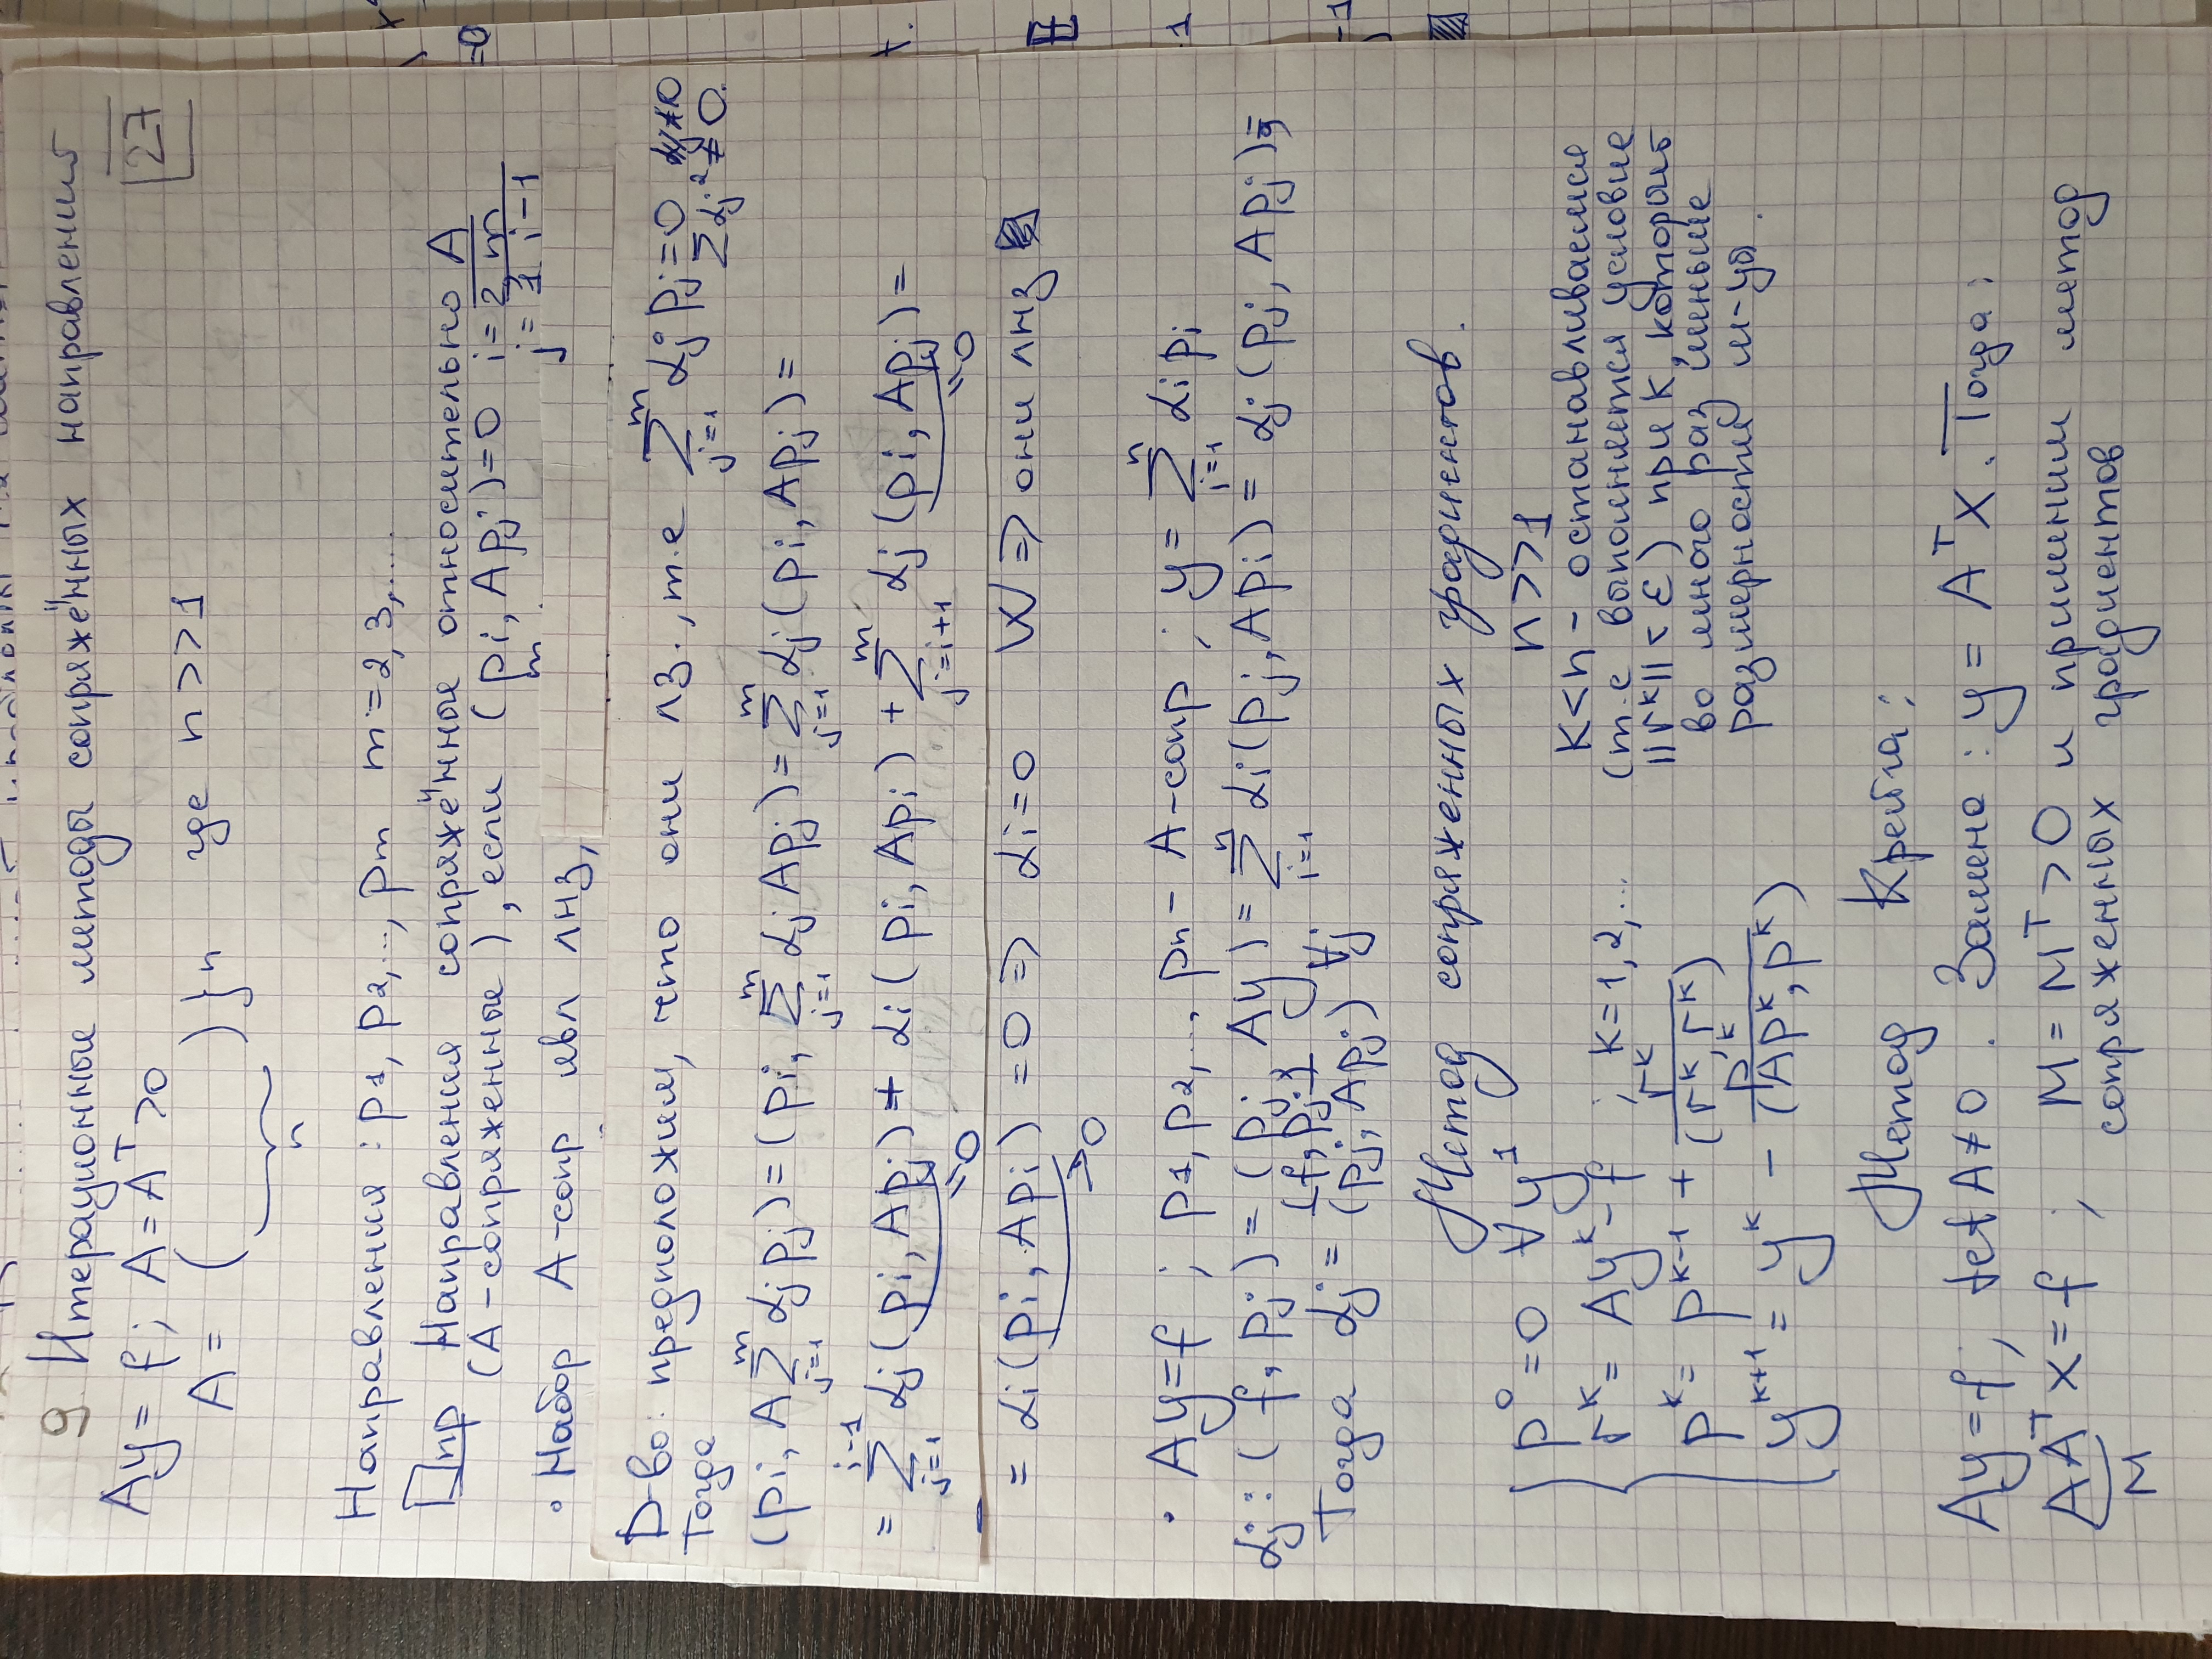 9 Итерационные методы сопряжённых направлений
27
Ay = f; A = Aᵀ > 0
A = ( ) } n где n >> 1
n
Направления: p₁, p₂, ..., pm m = 2, 3, ....
Опр Направления сопряжённые относительно A
(A-сопряженные), если (pi, Apj) = 0 i = 2, m
j = 1, i-1
• Набор A-сопр явл ЛНЗ,
Д-во: предположим, что они ЛЗ., т.е ∑_{j=1}^{m} αj pj = 0 ∑αj² ≠ 0.
Тогда
(pi, A ∑_{j=1}^{m} αj pj) = (pi, ∑_{j=1}^{m} αj Apj) = ∑_{j=1}^{m} αj (pi, Apj) =
= ∑_{j=1}^{i-1} αj (pi, Apj) + αi (pi, Api) + ∑_{j=i+1}^{m} αj (pi, Apj) =
=0 =0
= αi (pi, Api) = 0 => αi = 0 ∀i => они ЛНЗ
>0
• Ay = f ; p₁, p₂, ..., pn - A-сопр ; y = ∑_{i=1}^{n} αi pi
αj : (f, pj) = (pj, Ay) = ∑_{i=1}^{n} αi (pj, Api) = αj (pj, Apj) =
Тогда αj = (f, pj) / (pj, Apj) ∀j
Метод сопряженных градиентов.
p⁰ = 0 ∀ y¹ n >> 1
rᵏ = Ayᵏ - f ; k = 1, 2, ...
pᵏ = pᵏ⁻¹ + rᵏ / (rᵏ, rᵏ)
yᵏ⁺¹ = yᵏ - pᵏ / (Apᵏ, pᵏ)
k < n - останавливаемся
(т.е выполняется условие
||rᵏ|| < ε) при k, который
во много раз меньше
размерности м-цы.
Метод Крейга:
Ay = f, det A ≠ 0. Замена: y = Aᵀx. Тогда:
AAᵀx = f ; M = Mᵀ > 0 и применим метод
M сопряженных градиентов